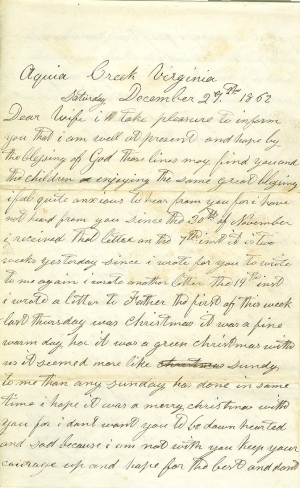 Aquia Creek Virginia
Saturday December 27th 1862
Dear Wife i ill take pleasure to inform
you that i am well at present and hope by
the blessing of God thes lines may find you and
the children enjoying the same great blessing
i fell quite anxious to hear from you for i have
not heard from you since the 30th of November
i received that letter on the 7th inst it is two
weeks yesterday since i wrote for you to write
to me again i wrote another letter the 19th inst
i wrote a letter to Father the first of this week
last thursday was Christmas it was a fine
warm day her it was a green Christmas with
us it seemed more like christmas sunday
to me than any sunday has done in some
time i hope it was a merry christmas with
you for i dont want you to be down hearted
and sad because i am not with you keep your
courage up and hope for the best and dont